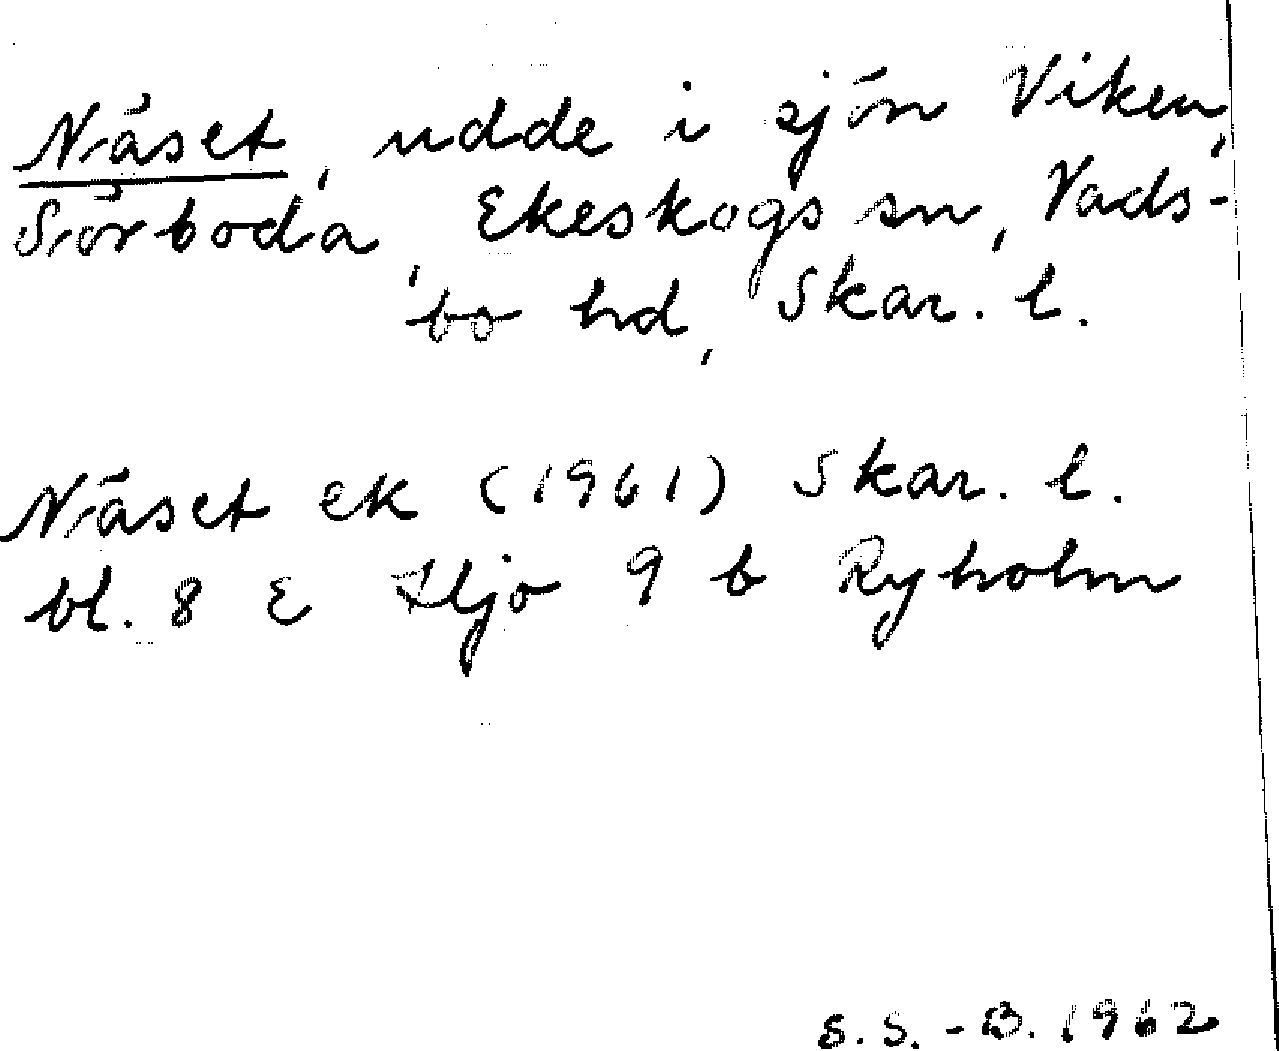 Näset, udde i sjön Viken,
Sörboda, Ekeskogs sn, Vads-
bo hd, Skar. l.
Näset ek (1961) Skar. l.
bl. 8 E Hjo 9 b Ryholm
S.S.-B. 1962